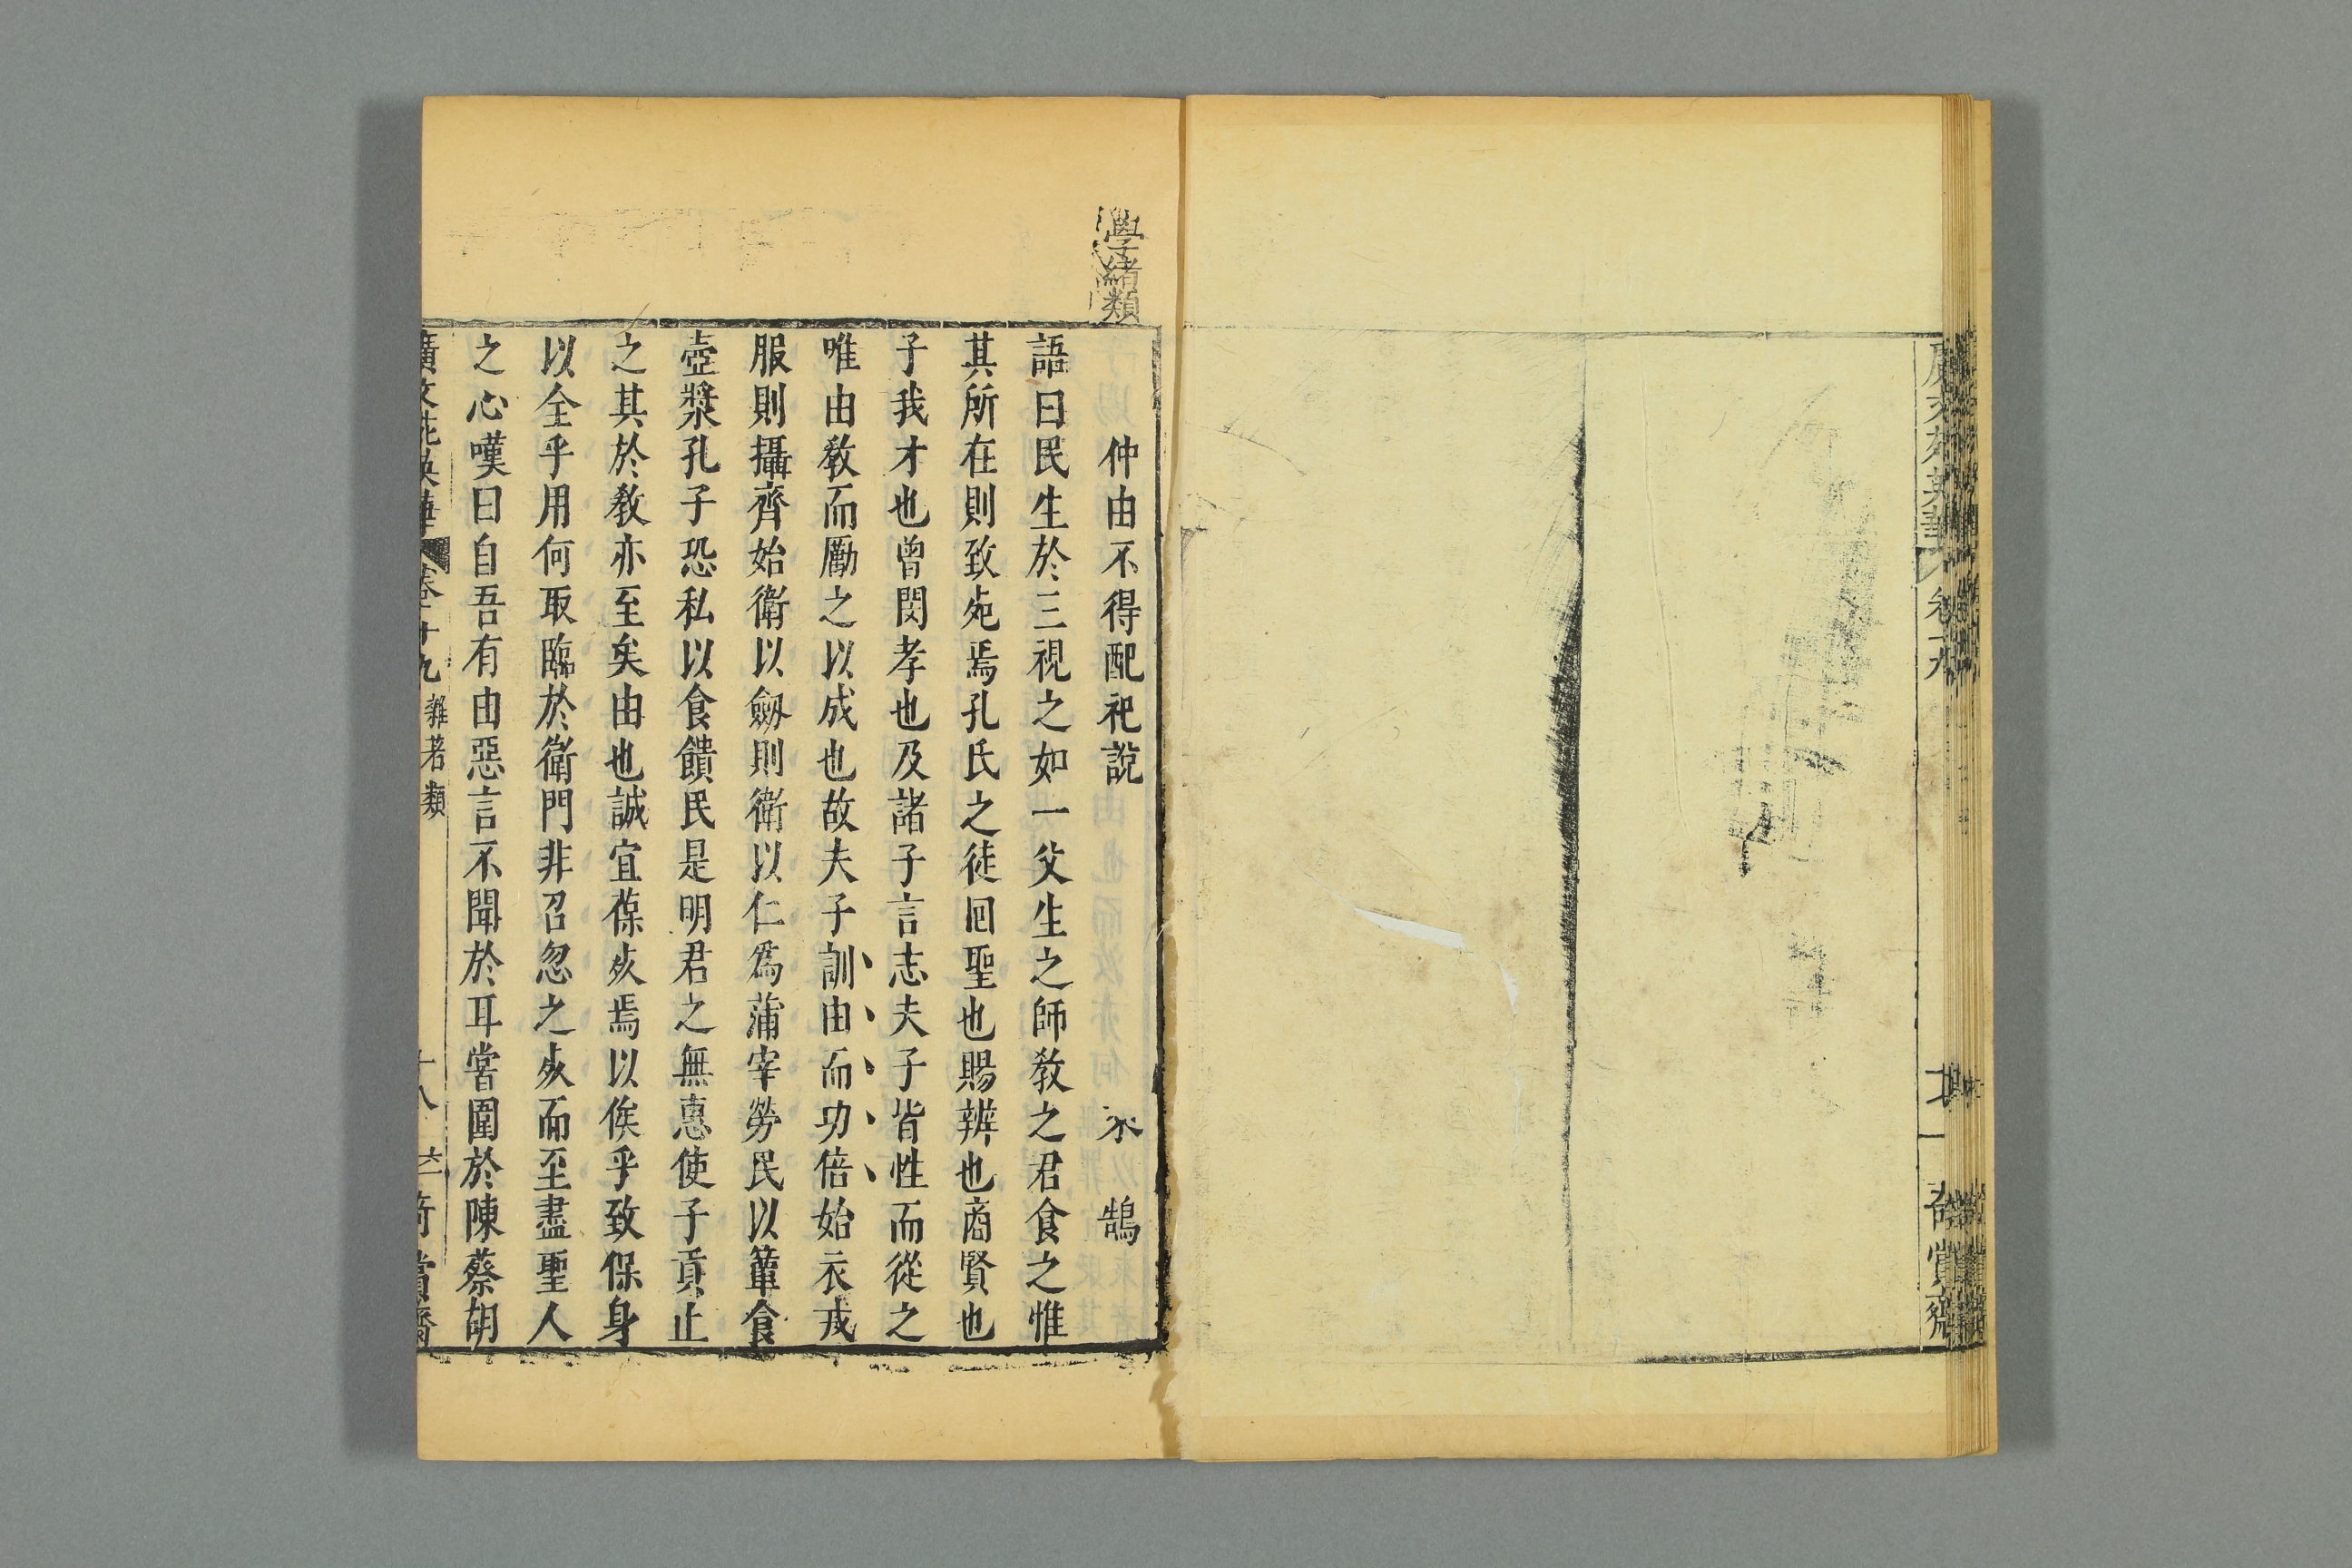 學緒類
仲由不得配祀說　來鵠
語曰民生於三視之如一父生之師教之君食之惟
其所在則致死焉孔氏之徒回聖也賜辨也商賢也
子我才也曾閔孝也及諸子言志夫子皆性而從之
唯由教而勵之以成也故夫子訓由而功倍始衣戎
服則攝齊始衛以劔則衛以仁爲蒲宰勞民以簞食
壺漿孔子恐私以食饋民是明君之無惠使子貢止
之其於教亦至矣由也誠宜葆炗焉以俟乎致保身
以全乎用何取臨於衛門非召忽之炗而至盡聖人
之心嘆曰自吾有由惡言不聞於耳嘗圍於陳蔡胡
廣文苑英華　卷十九　雜著類　十八　奇賞齋